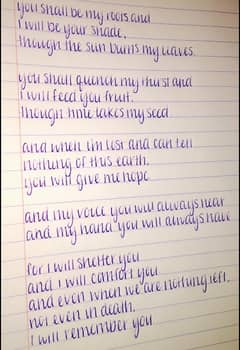 you shall be my roots and
I will be your shade,
though the sun burns my leaves.
you shall quench my thirst and
I will feed you fruit,
though time takes my seed.
and when I'm lost and can tell
nothing of this earth,
you will give me hope.
and my voice you will always hear
and my hand you will always have
for I will shelter you
and I will comfort you
and even when we are nothing left,
not even in death,
I will remember you